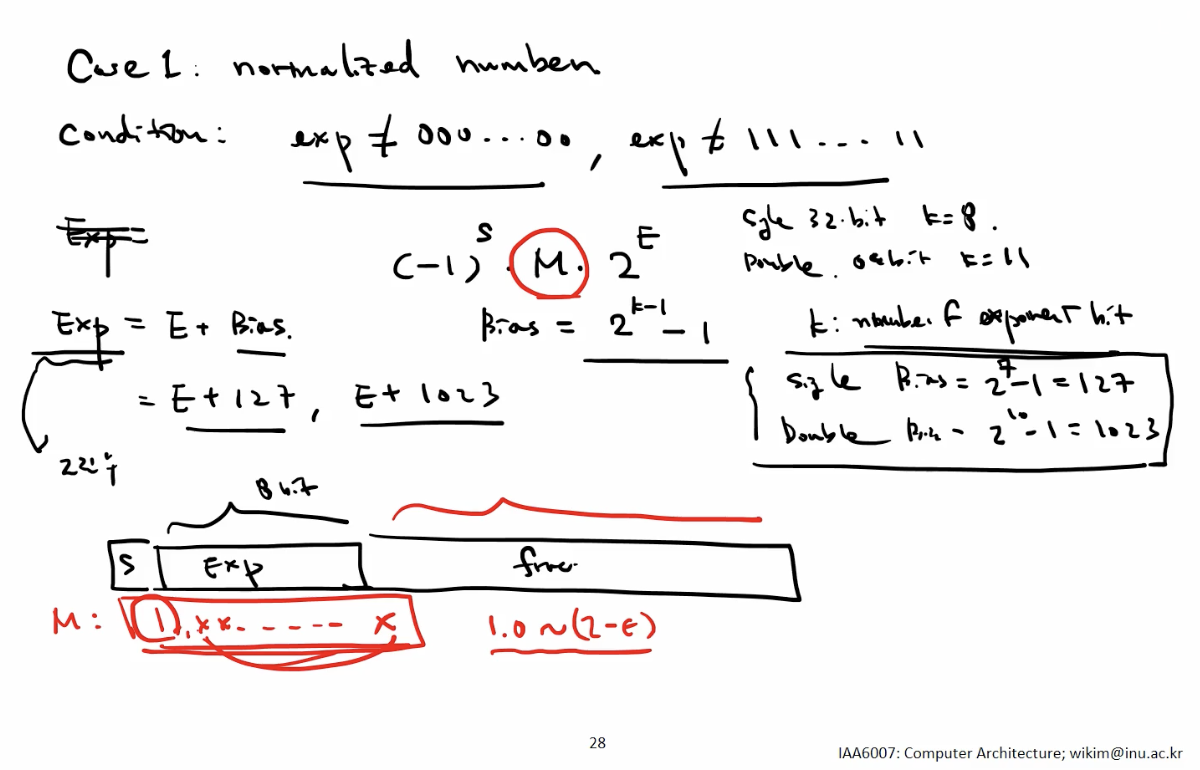 Case 1: normalized number
Condition: exp ≠ 000...00, exp ≠ 111...11
Exp
(-1)^S · M · 2^E
Single 32-bit k=8.
Double. 64bit k=11
Exp = E + Bias.
Bias = 2^{k-1} - 1
k: number of exponent bit
= E+127, E+1023
Single Bias = 2^7-1 = 127
Double Bias = 2^10-1 = 1023
8 bit
S Exp frac
M: 1.xx------x 1.0 ~ (2-ε)
28
IAA6007: Computer Architecture; wikim@inu.ac.kr